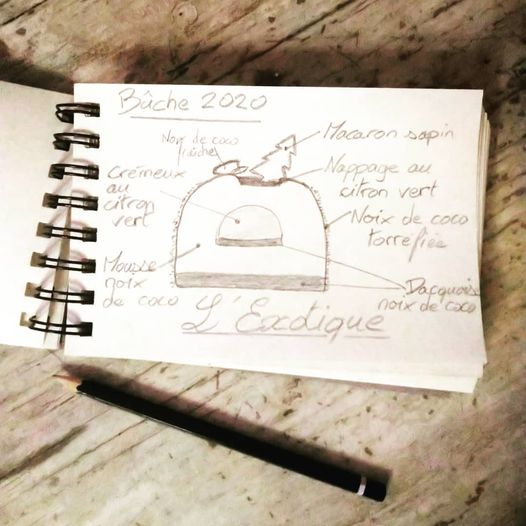 Bûche 2020
Noix de coco
fraîche
Macaron sapin
Crémeux
au
citron
vert
Nappage au
citron vert
Noix de coco
torréfiée
Mousse
noix
de coco
Dacquoise
noix de coco
L'Exotique